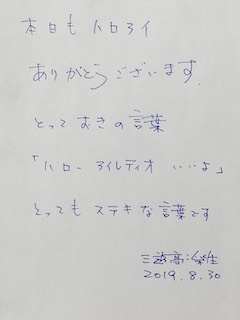 本日も ハロアイ
ありがとうございます.
とっておきの言葉
「ハロー アイルディオ いいよ」
とっても ステキな言葉です
2019.8.30